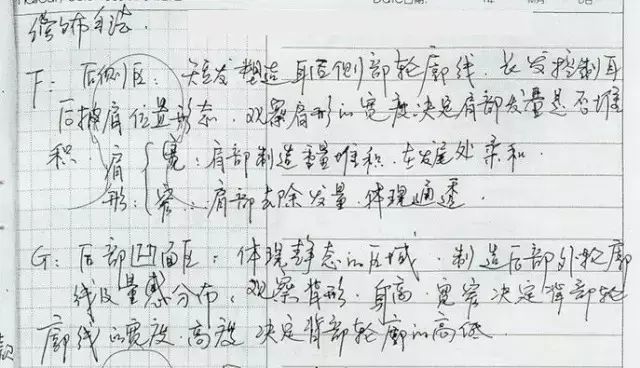 F: 后侧区: 短发塑造耳后侧部轮廓线. 长发控制耳
后披肩位置形态. 观察肩形的宽度决定肩部发量是否堆
积. 肩 { 宽: 肩部制造重量堆积. 在发尾处柔和.
形: { 窄: 肩部去除发量. 体现通透.
G: 后部凹面区: 体现静态的区域. 制造后部外轮廓
线及量感分布. 观察背形. 身高. 宽窄决定背部轮
廓线的宽度. 高度决定背部轮廓的高低.